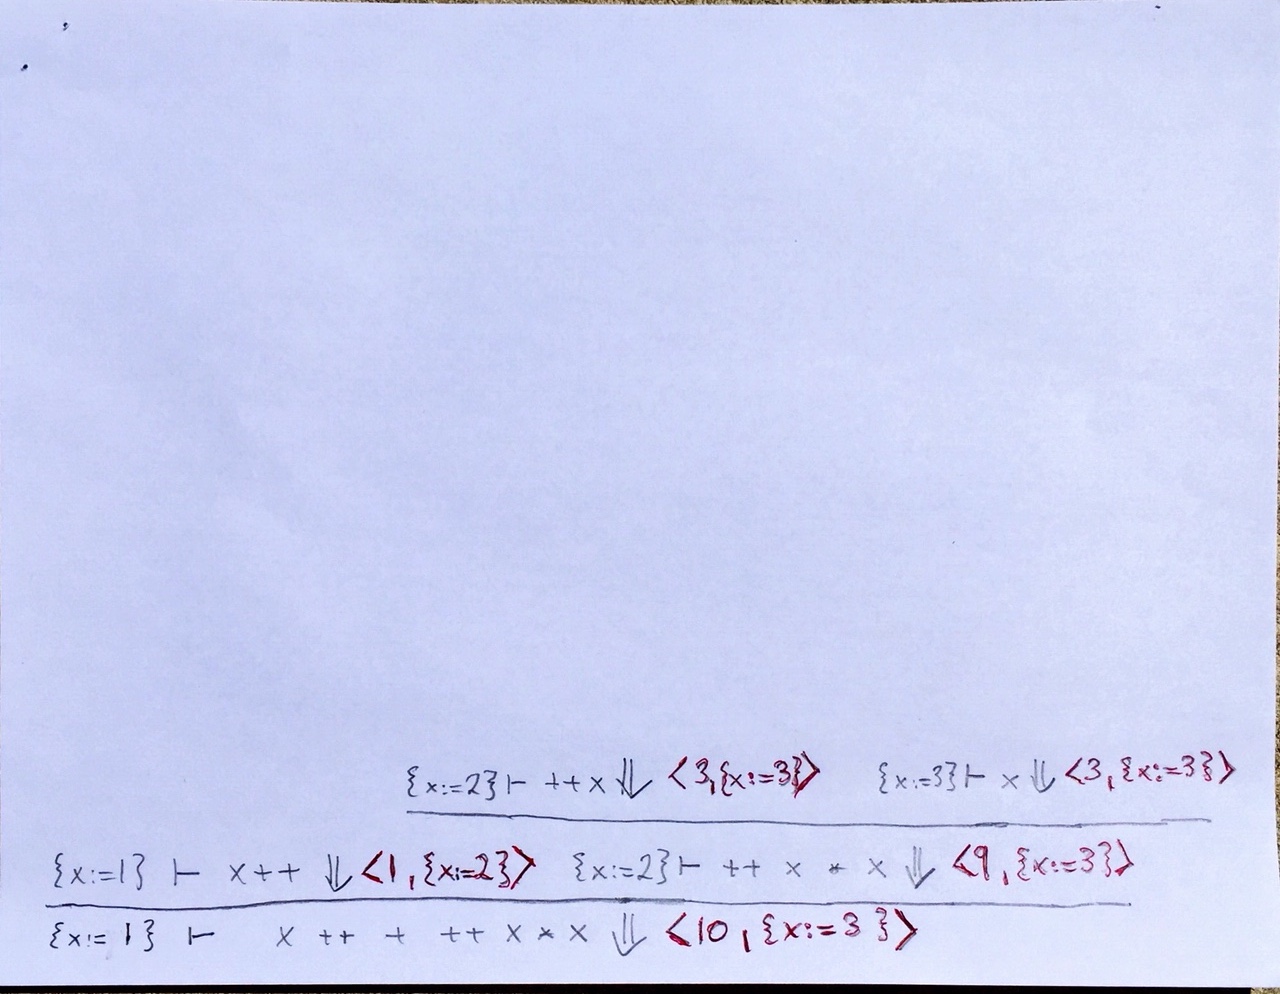 {x:=2} ⊢ ++x ⇓ <3,{x:=3}> {x:=3} ⊢ x ⇓ <3,{x:=3}>
{x:=1} ⊢ x++ ⇓ <1,{x:=2}> {x:=2} ⊢ ++ x * x ⇓ <9,{x:=3}>
{x:=1} ⊢ x ++ + ++ x * x ⇓ <10,{x:=3}>